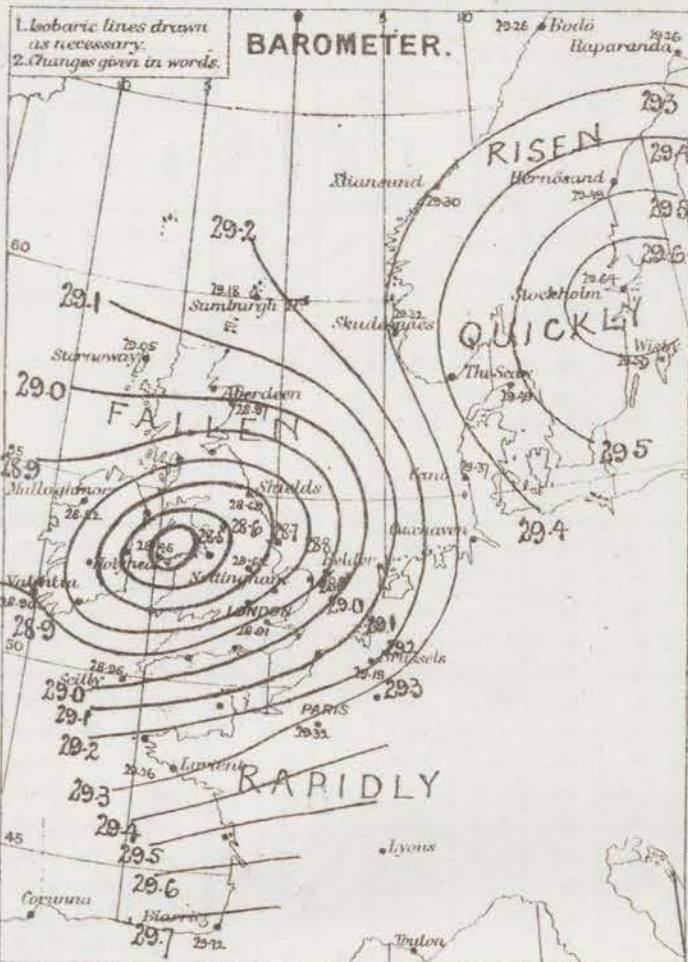 1. Isobaric lines drawn
as necessary.
2. Changes given in words.
BAROMETER.
10
5
5
10
29·26
Bodö
29·26
Haparanda
29·3
RISEN
29·4
Xtiansund
29·30
Hernösand
29·49
29·5
29·2
60
29·6
29·64
Stockholm
29·18
Sumburgh Hd
29·1
29·32
Skudesnaes
QUICKLY
Wisby
29·05
Stornoway
The Scaw
29·49
29·0
Aberdeen
28·97
FALLEN
29·5
55
28·9
Mullaghmore
28·82
Shields
28·68
Fanö
29·37
29·4
28·6
28·7
28·8
28·5
Cuxhaven
Holyhead
Helder
Nottingham
Valentia
28·90
28·9
LONDON
28·91
29·0
29·1
29·2
Brussels
29·19
50
28·98
Scilly
29·0
29·3
29·1
PARIS
29·32
29·2
29·36
Lorient
RAPIDLY
29·3
29·4
45
29·5
Lyons
29·6
Corunna
Biarritz
29·7
29·72
Toulon